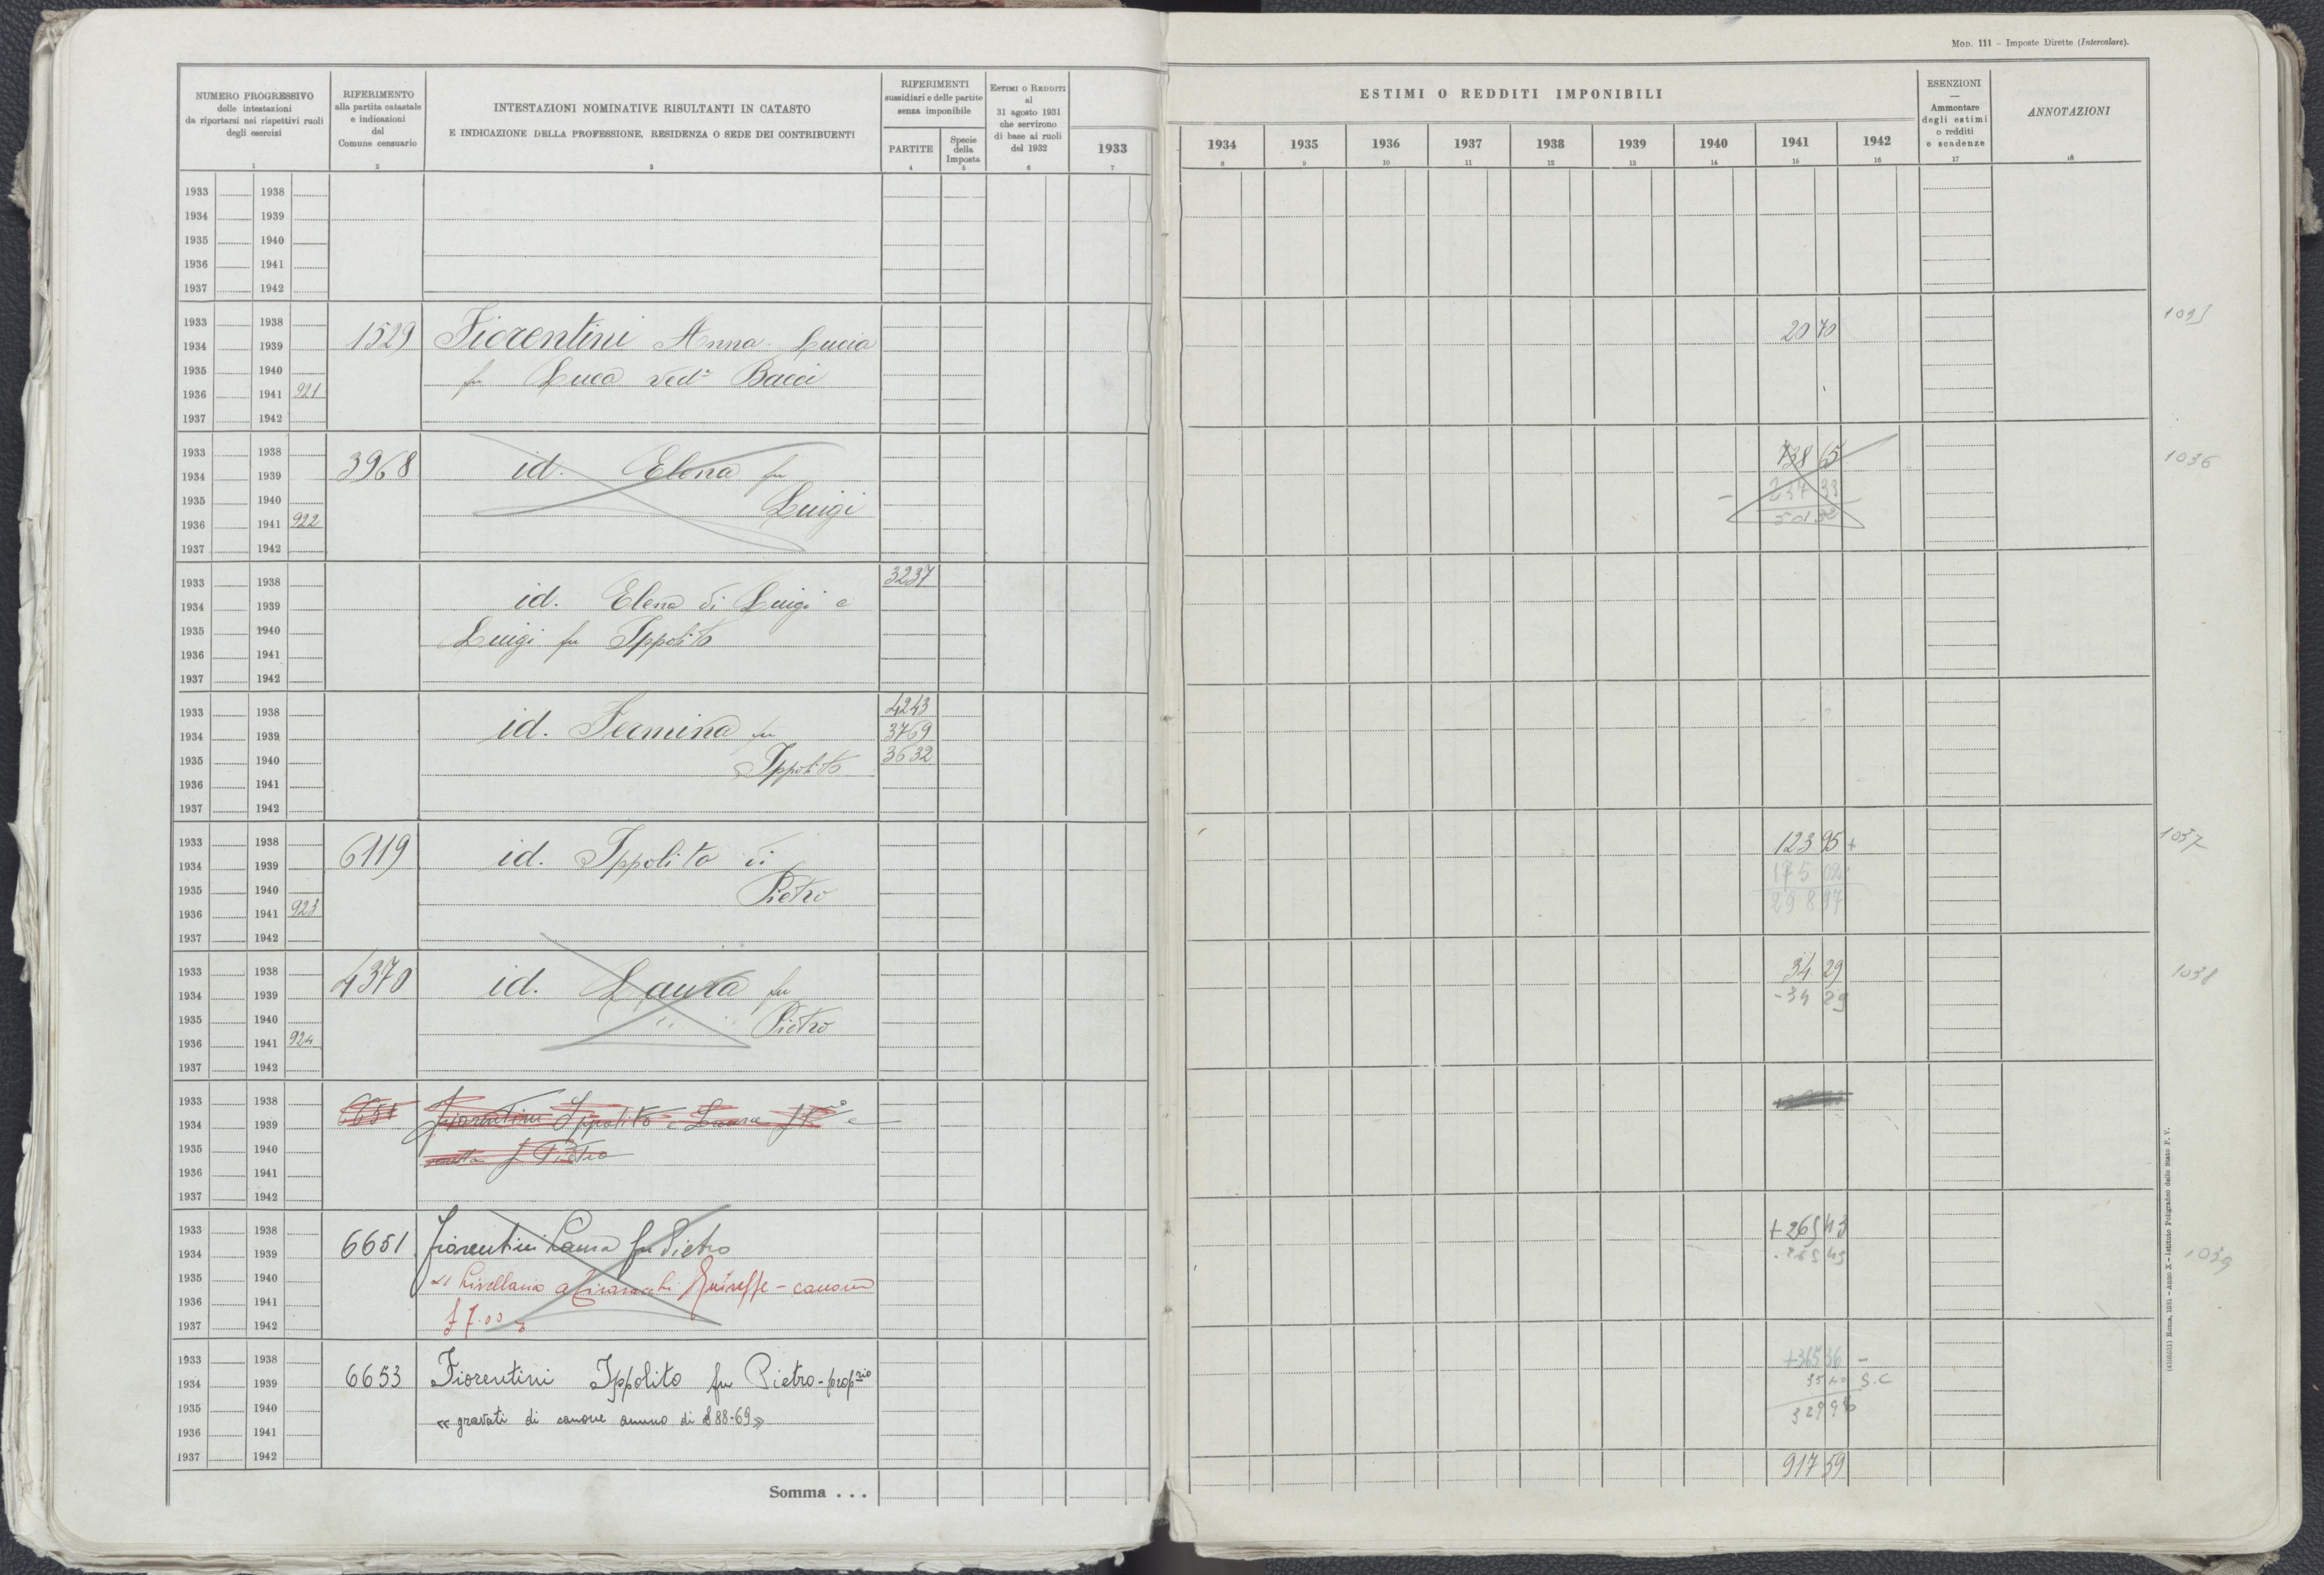 MOD. 111 – Imposte Dirette (Intercalare).
NUMERO PROGRESSIVO
delle intestazioni
da riportarsi nei rispettivi ruoli
degli esercizi
1
RIFERIMENTO
alla partita catastale
e indicazioni
del
Comune censuario
2
INTESTAZIONI NOMINATIVE RISULTANTI IN CATASTO
E INDICAZIONE DELLA PROFESSIONE, RESIDENZA O SEDE DEI CONTRIBUENTI
3
RIFERIMENTI
sussidiari e delle partite
senza imponibile
PARTITE
4
Specie
della
Imposta
5
ESTIMI O REDDITI
al
31 agosto 1931
che servirono
di base ai ruoli
del 1932
6
1933
7
ESTIMI O REDDITI IMPONIBILI
1934 1935 1936 1937 1938 1939 1940 1941 1942
8 9 10 11 12 13 14 15 16
ESENZIONI
—
Ammontare
degli estimi
o redditi
e scadenze
17
ANNOTAZIONI
18
1933 1938
1934 1939
1935 1940
1936 1941
1937 1942
1933 1938
1934 1939 1529 Fiorentini Anna Lucia 20 70
1935 1940 fu Luca ved.a Bacci
1936 1941 921
1937 1942
1933 1938 738 65 1036
1934 1939 3968 id. Elena fu
1935 1940 Luigi – 237 33
1936 1941 922 501 32
1937 1942
1933 1938 3237
1934 1939 id. Elena di Luigi e
1935 1940 Luigi fu Ippolito
1936 1941
1937 1942
1933 1938 4243
1934 1939 id. Fermina fu 3769
1935 1940 Ippolito 3632
1936 1941
1937 1942
1933 1938 6119 id. Ippolito di 123 95 + 1037
1934 1939 175 02
1935 1940 Pietro 298 97
1936 1941 923
1937 1942
1933 1938 4370 id. Laura fu 34 29 1038
1934 1939 -34 29
1935 1940 Pietro
1936 1941 924
1937 1942
1933 1938
1934 1939 Fiorentini Ippolito e Laura
1935 1940 f Pietro
1936 1941
1937 1942
1933 1938 + 265 43
1934 1939 6651 Fiorentini Laura fu Pietro 1039
1935 1940 Livellaria a Giuseffe – canone
1936 1941
1937 1942 £ 7.00
1933 1938 +365 36 –
1934 1939 6653 Fiorentini Ippolito fu Pietro - proprio 35 40 S.C
1935 1940 « gravati di canone annuo di £ 88-69 » 329 96
1936 1941
1937 1942 917 59
Somma . . .
Roma, 1931 – Anno X – Istituto Poligrafico dello Stato P. V.